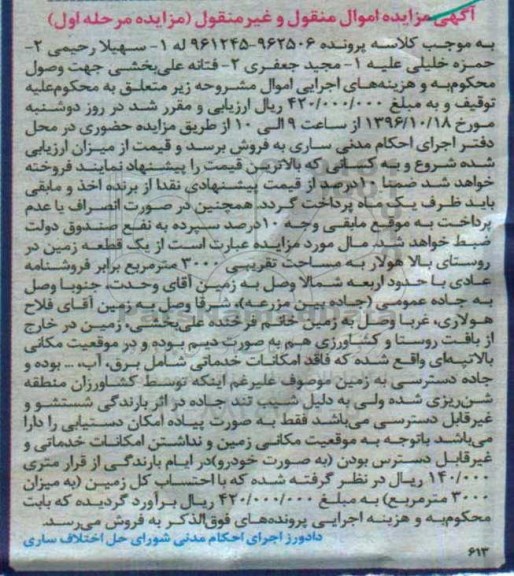 آگهی مزایده اموال منقول و غیرمنقول (مزایده مرحله اول)
به موجب کلاسه پرونده ۹۶۲۵۰۶-۹۶۱۲۴۵ له ۱- سهیلا رحیمی ۲-
حمزه خلیلی علیه ۱- مجید جعفری ۲- فتانه علی‌بخشی جهت وصول
محکوم‌به و هزینه‌های اجرایی اموال مشروحه زیر متعلق به محکوم‌علیه
توقیف و به مبلغ ۴۲۰/۰۰۰/۰۰۰ ریال ارزیابی و مقرر شد در روز دوشنبه
مورخ ۱۳۹۶/۱۰/۱۸ از ساعت ۹ الی ۱۰ از طریق مزایده حضوری در محل
دفتر اجرای احکام مدنی ساری به فروش برسد و قیمت از میزان ارزیابی
شده شروع و به کسانی که بالاترین قیمت را پیشنهاد نمایند فروخته
خواهد شد ضمنا ۱۰درصد از قیمت پیشنهادی نقدا از برنده اخذ و مابقی
باید ظرف یک ماه پرداخت گردد. همچنین در صورت انصراف یا عدم
پرداخت به موقع مابقی وجه ۱۰درصد سپرده به نفع صندوق دولت
ضبط خواهد شد. مال مورد مزایده عبارت است از یک قطعه زمین در
روستای بالا هولار به مساحت تقریبی ۳۰۰۰ مترمربع برابر فروشنامه
عادی با حدود اربعه شمالا وصل به زمین آقای وحدت، جنوبا وصل
به جاده عمومی (جاده بین مزرعه)، شرقا وصل به زمین آقای فلاح
هولاری، غربا وصل به زمین خانم فرخنده علی‌بخشی، زمین در خارج
از بافت روستا و کشاورزی هم به صورت دیم بوده و در موقعیت مکانی
بالاتپه‌ای واقع شده که فاقد امکانات خدماتی شامل برق، آب، ... بوده و
جاده دسترسی به زمین موصوف علیرغم اینکه توسط کشاورزان منطقه
شن‌ریزی شده ولی به دلیل شیب تند جاده در اثر بارندگی شستشو و
غیرقابل دسترسی می‌باشد فقط به صورت پیاده امکان دستیابی را دارا
می‌باشد باتوجه به موقعیت مکانی زمین و نداشتن امکانات خدماتی و
غیرقابل دسترس بودن (به صورت خودرو)در ایام بارندگی از قرار متری
۱۴۰/۰۰۰ ریال در نظر گرفته شده که با احتساب کل زمین (به میزان
۳۰۰۰ مترمربع) به مبلغ ۴۲۰/۰۰۰/۰۰۰ ریال برآورد گردیده که بابت
محکوم‌به و هزینه اجرایی پرونده‌های فوق‌الذکر به فروش می‌رسد.
دادورز اجرای احکام مدنی شورای حل اختلاف ساری
۶۱۳